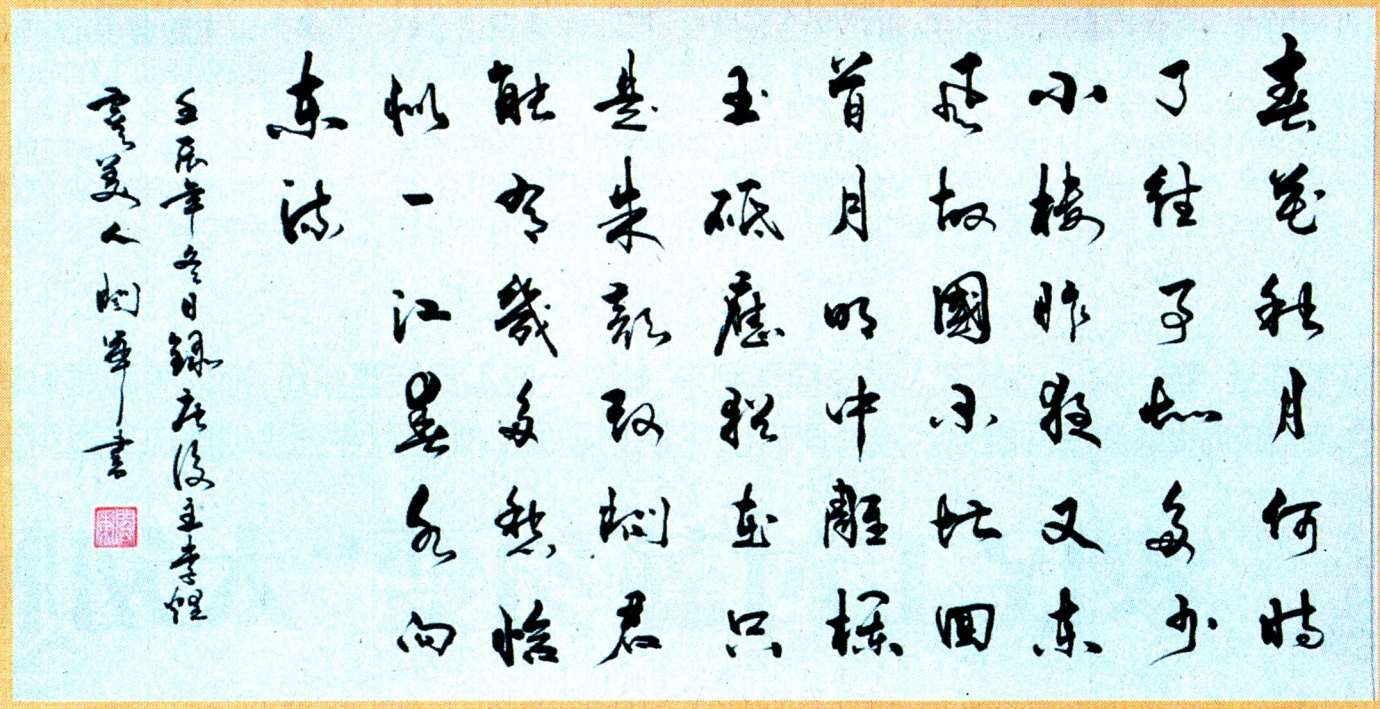 春花秋月何時
了往事知多少
小樓昨夜又東
風故國不堪回
首月明中雕欄
玉砌應猶在只
是朱顏改問君
能有幾多愁恰
似一江春水向
東流
壬辰年冬日録唐後主李煜
虞美人 書